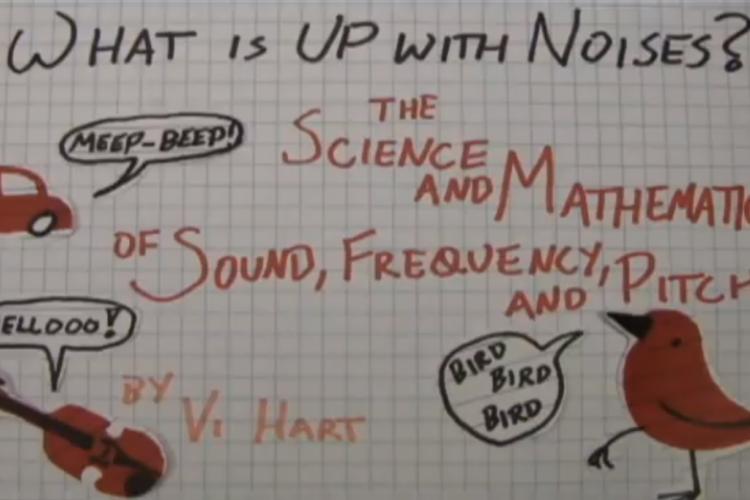 WHAT IS UP WITH NOISES?
MEEP-BEEP!
THE
SCIENCE
AND MATHEMATIC
OF SOUND, FREQUENCY,
AND PITCH
ELLOOO!
BY VI HART
BIRD
BIRD
BIRD